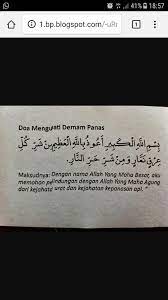 18:57
1.bp.blogspot.com/-u8r
Doa Mengubati Demam Panas
بِسْمِ اللَّهِ الْكَبِيرِ أَعُوذُ بِاللَّهِ الْعَظِيمِ مِنْ شَرِّ كُلِّ
عِرْقٍ نَعَّارٍ وَمِنْ شَرِّ حَرِّ النَّارِ.
Maksudnya: Dengan nama Allah Yang Moha Besar, aku
memohon pelindungan dengan Allah Yang Maha Agung
dari kejahatan urat dan kejahatan kepanasan api. "